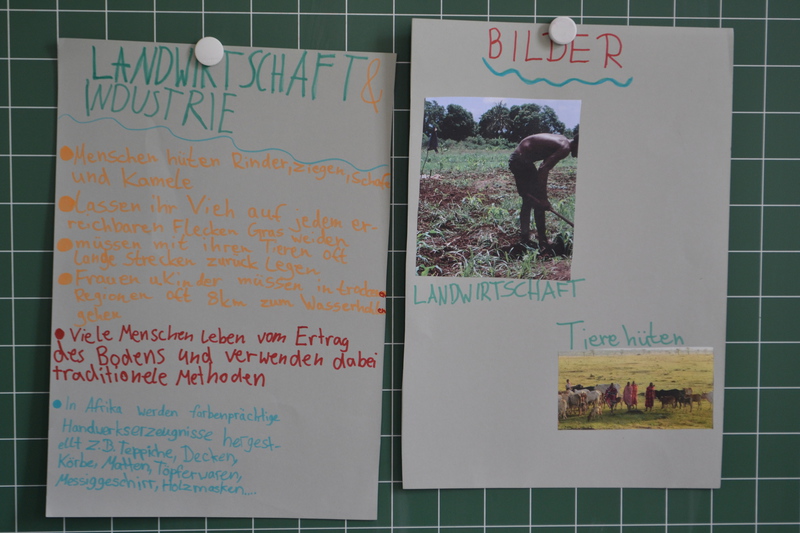 LANDWIRTSCHAFT &
INDUSTRIE
Menschen hüten Rinder, ziegen, Schafe
und Kamele
Lassen ihr Vieh auf jedem er-
reichbaren Flecken Gras weiden
müssen mit ihren Tieren oft
Lange strecken zurück Legen
Frauen u. Kinder müssen in trockenen
Regionen oft 8km zum Wasserholen
gehen
Viele Menschen Leben vom Ertrag
des Bodens und verwenden dabei
traditionele Methoden
In Afrika werden farbenprächtige
Handwerkserzeugnisse hergest-
ellt z.B. Teppiche, Decken,
Körbe, Matten, Töpferwaren,
Messiggeschirr, Holzmasken....
BILDER
LANDWIRTSCHAFT
Tiere hüten